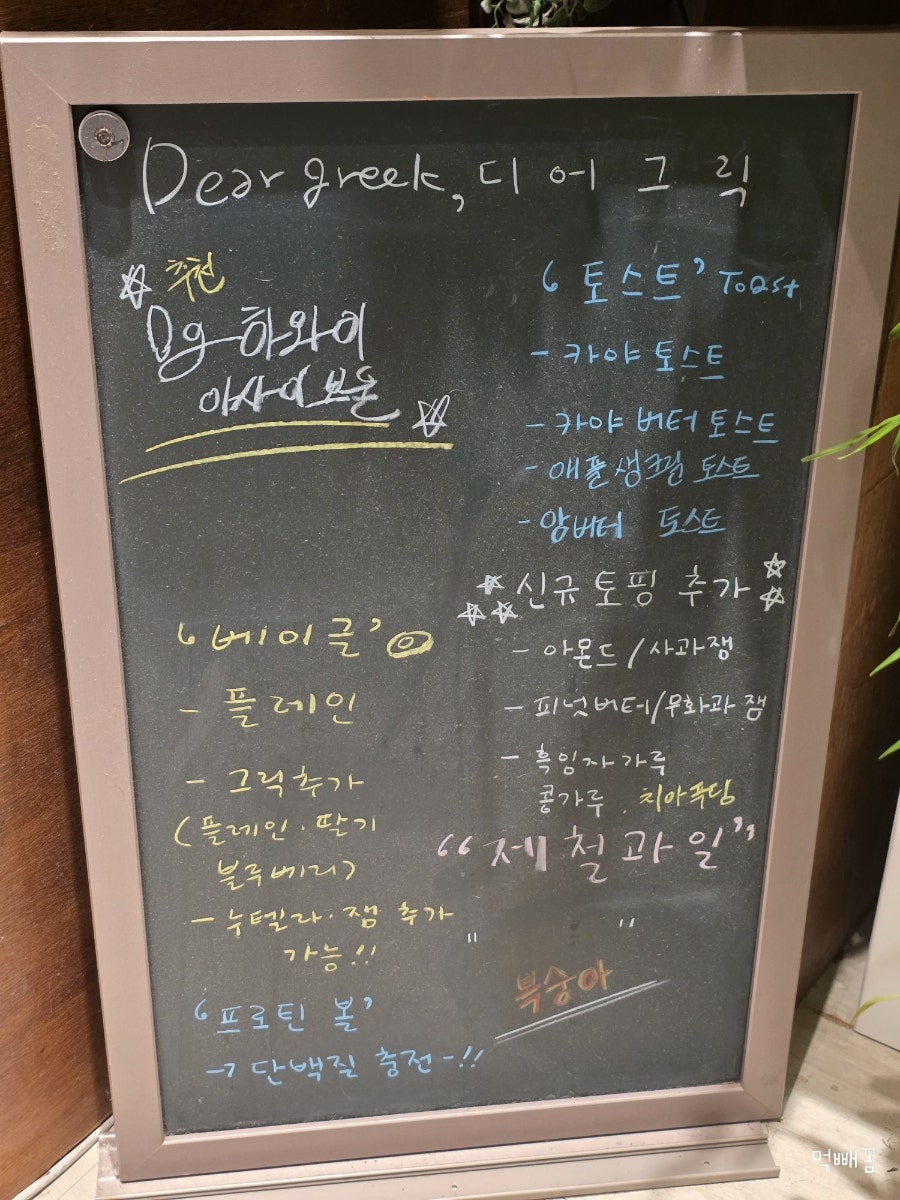 Dear greek, 디어그릭
추천
Dg 하와이
아사이 보울
'베이글'
- 플레인
- 그릭추가
(플레인·딸기
블루베리)
- 누텔라·잼 추가
가능!!
'프로틴 볼'
→ 단백질 충전-!!
'토스트' Toast
- 카야 토스트
- 카야 버터 토스트
- 애플생크림 토스트
- 앙버터 토스트
신규 토핑 추가
- 아몬드/사과잼
- 피넛버터/무화과 잼
- 흑임자가루
콩가루 . 치아푸딩
"제철과일"
" "
복숭아
먹빼꼼